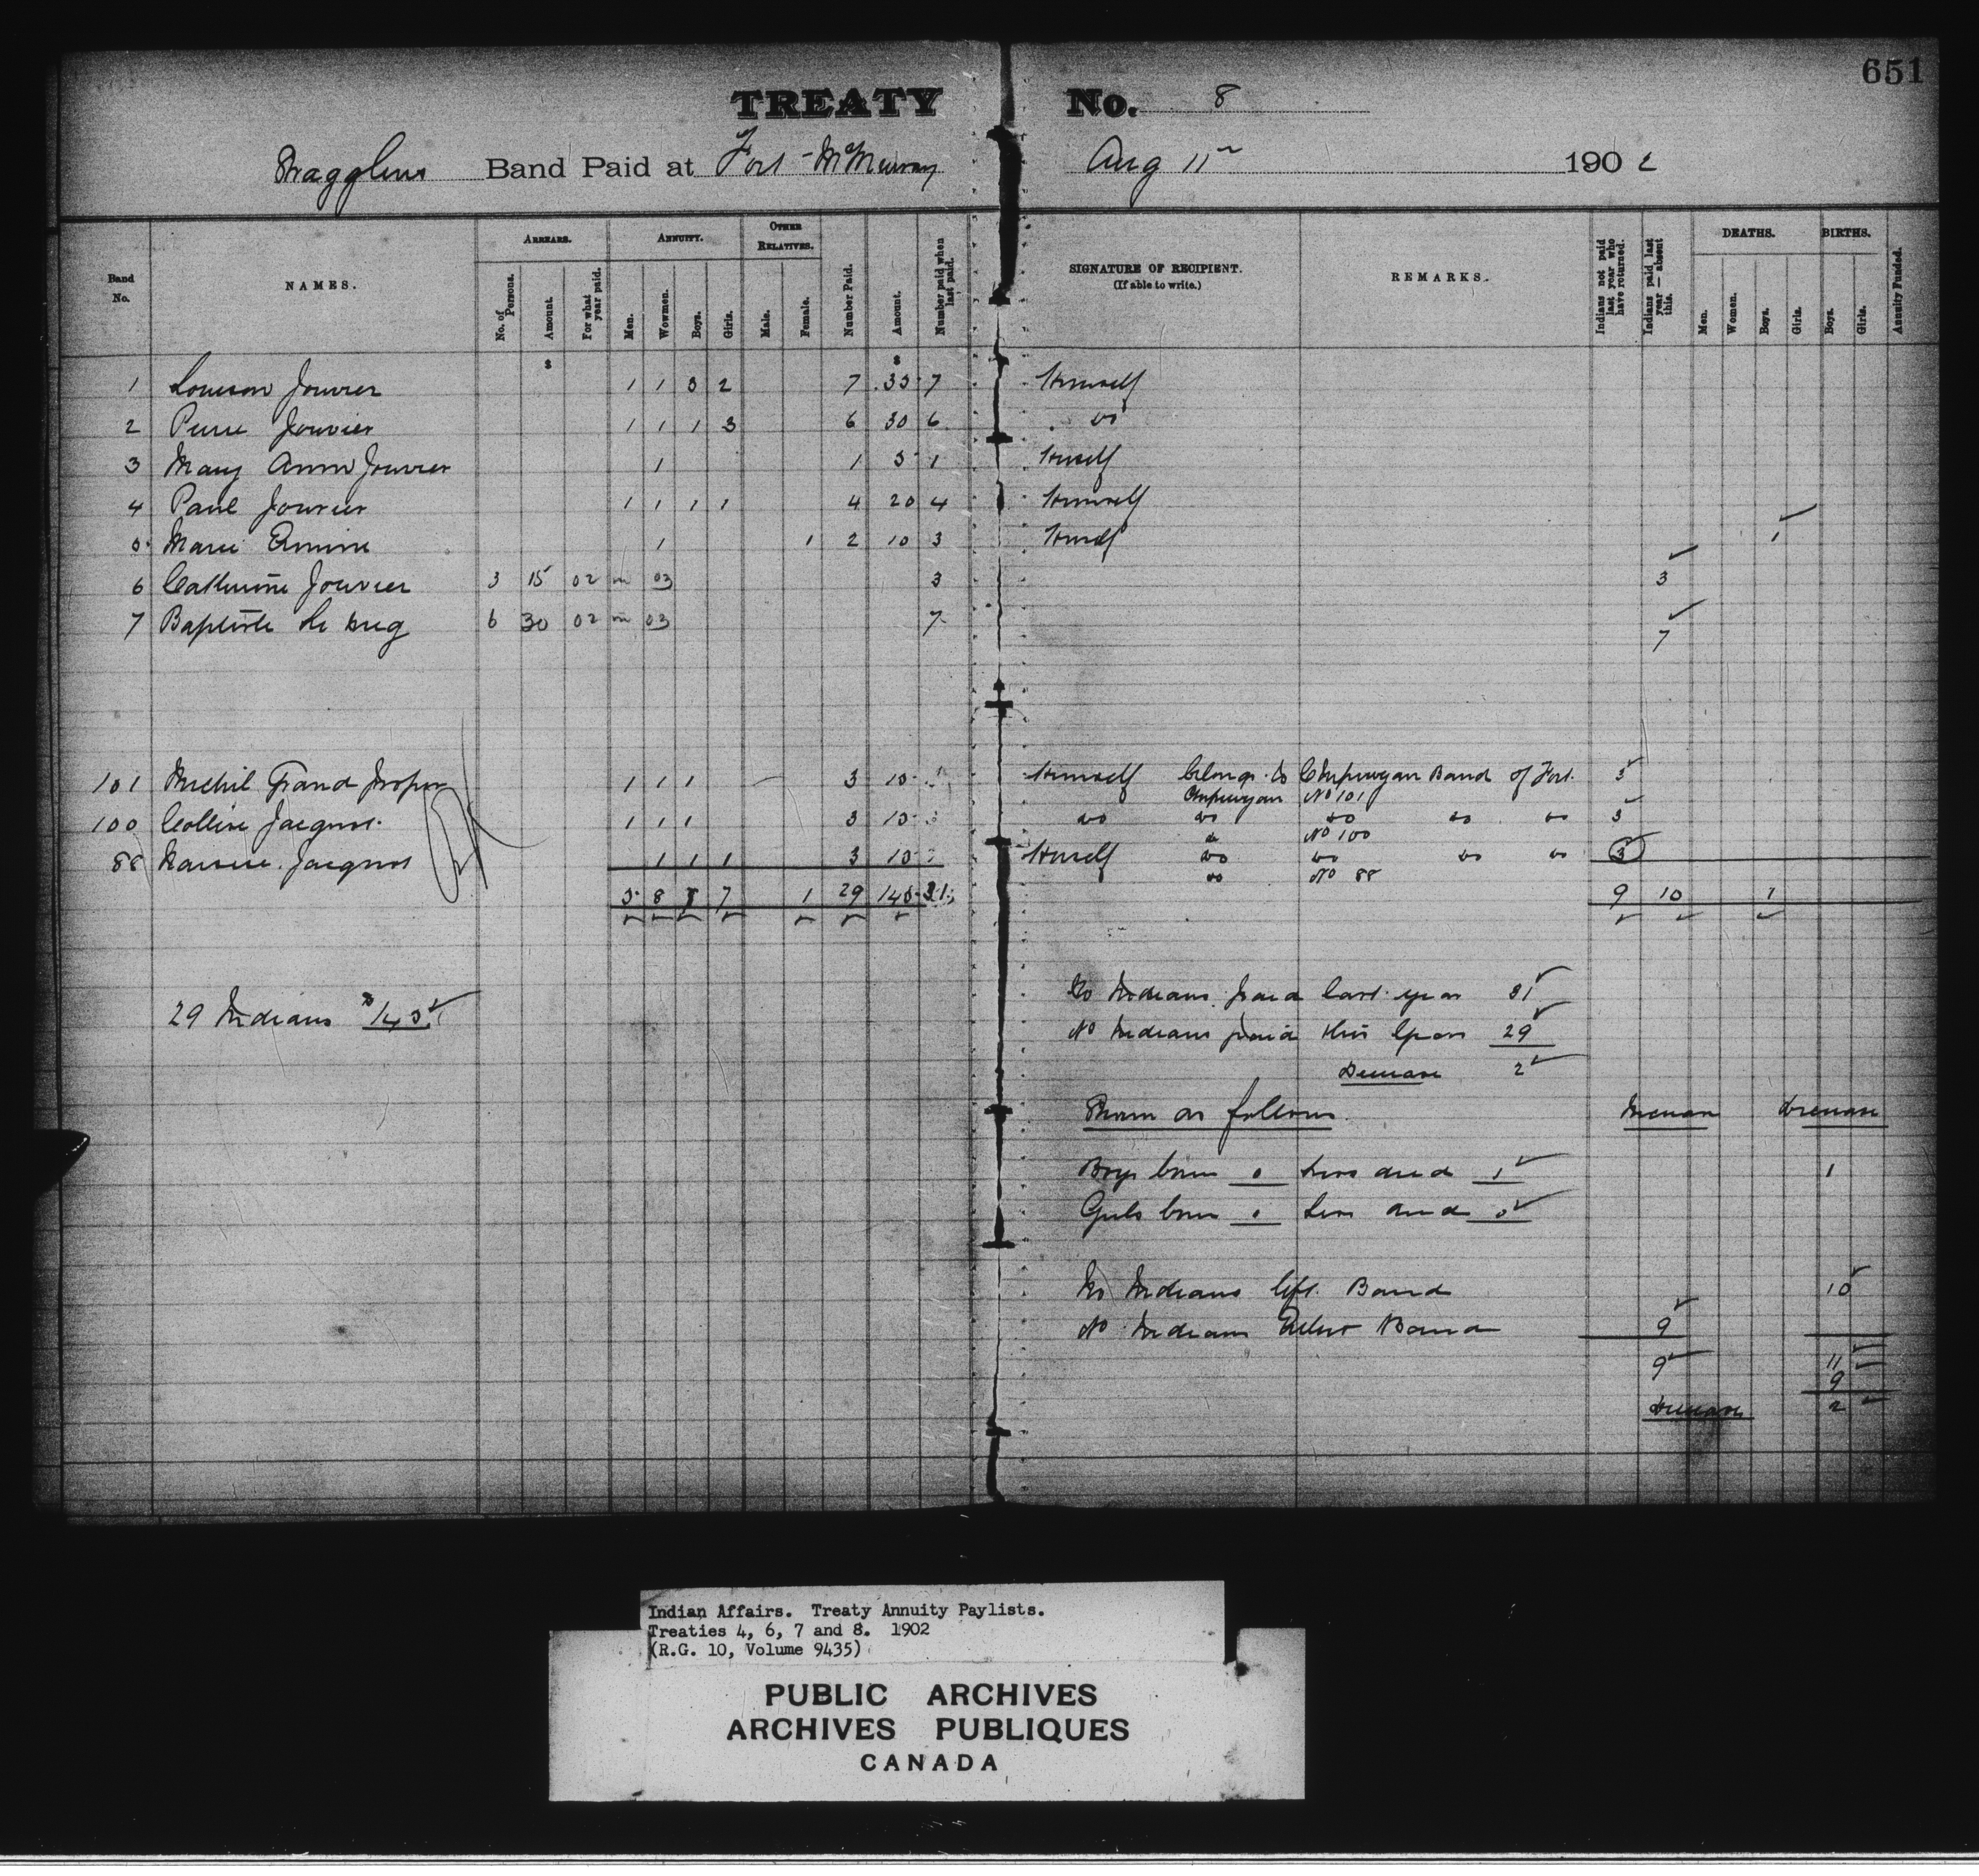 651
TREATY No. 8
Stragglers Band Paid at Fort McMurray Aug 11th 1902
Band No. NAMES. ARREARS. ANNUITY. OTHER RELATIVES. Number Paid. Amount. Number paid when last paid. SIGNATURE OF RECIPIENT. (If able to write.) REMARKS. Indians not paid last year who have returned. Indians paid last year — absent this. DEATHS. BIRTHS. Annuity Funded.
No. of Persons. Amount. For what year paid. Men. Wowmen. Boys. Girls. Male. Female. Men. Women. Boys. Girls. Boys. Girls.
$ $
1 Louison Jouvier 1 1 3 2 7 35 7 Himself
2 Pierre Jouvier 1 1 1 3 6 30 6 do
3 Mary Ann Jouvier 1 1 5 1 Herself
4 Paul Jouvier 1 1 1 1 4 20 4 Himself
5 Marie 1 1 2 10 3 Herself 1
6 Catherine Jouvier 3 15 02 in 03 3 3
7 Baptiste 6 30 02 in 03 7 7
101 Michel Grand 1 1 1 3 15 Himself belongs to Chipewyan Band of Fort 3
Chipewyan No 101
100 Jacques 1 1 1 3 15 do do do do do 3
do No 100
88 Jacques 1 1 1 3 15 Herself do do do do 3
do No 88
5 8 8 7 1 29 145 31 9 10 1
No Indians paid last year 31
29 Indians $145
No Indians paid this year 29
Decrease 2
Shown as follows Increase Decrease
Boys born 0 died 1 1
Girls born 0 died 0
No Indians left Band 10
No Indians Band 9
9 11
9
Decrease 2
Indian Affairs. Treaty Annuity Paylists.
Treaties 4, 6, 7 and 8. 1902
(R.G. 10, Volume 9435)
PUBLIC ARCHIVES
ARCHIVES PUBLIQUES
CANADA